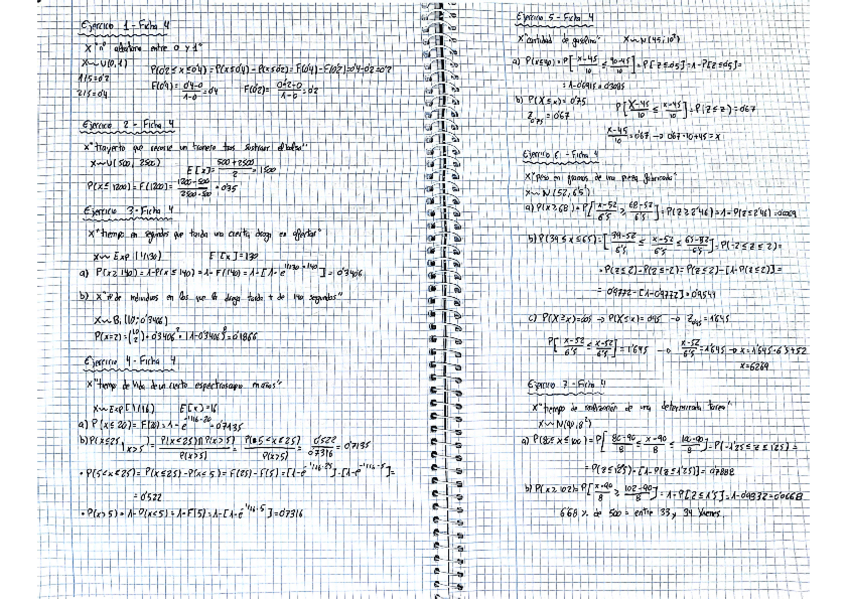 Ejercicio 1 - Ficha 4
X "nº aleatorio entre 0 y 1"
X ~ U(0,1)
1/5 = 0'2
2/5 = 0'4
P(0'2 ≤ x ≤ 0'4) = P(x ≤ 0'4) - P(x ≤ 0'2) = F(0'4) - F(0'2) = 0'4 - 0'2 = 0'2
F(0'4) = (0'4-0)/(1-0) = 0'4 F(0'2) = (0'2-0)/(1-0) = 0'2
Ejercicio 2 - Ficha 4
X "Trayecto que recorre un tras sustraer el bolso"
X ~ U(500, 2500)
E[x] = (500+2500)/2 = 1500
P(x ≤ 1200) = F(1200) = (1200-500)/(2500-500) = 0'35
Ejercicio 3 - Ficha 4
X "tiempo en segundos que tarda una cierta droga en afectar"
X ~ Exp(1/130) E[x] = 130
a) P(x ≥ 140) = 1 - P(x ≤ 140) = 1 - F(140) = 1 - [1 - e^(-1/130 · 140)] = 0'3406
b) X "nº de individuos en los que la droga tarda + de 140 segundos"
X ~ Bi(10; 0'3406)
P(x=2) = (10 2) · 0'3406² · (1-0'3406)⁸ = 0'1866
Ejercicio 4 - Ficha 4
X "tiempo de vida de un cierto espectroscopio"
X ~ Exp(1/16) E[x] = 16
a) P(x ≤ 20) = F(20) = 1 - e^(-1/16 · 20) = 0'7135
b) P(x ≤ 25 | x > 5) = P(x ≤ 25 ∩ x > 5)/P(x > 5) = P(5 ≤ x ≤ 25)/P(x > 5) = 0'522/0'7316 = 0'7135
· P(5 < x ≤ 25) = P(x ≤ 25) - P(x ≤ 5) = F(25) - F(5) = [1 - e^(-1/16 · 25)] - [1 - e^(-1/16 · 5)] =
= 0'522
· P(x > 5) = 1 - P(x < 5) = 1 - F(5) = 1 - [1 - e^(-1/16 · 5)] = 0'7316
Ejercicio 5 - Ficha 4
X "cantidad de gasolina" X ~ N(45; 10²)
a) P(x ≤ 40) = P[(x-45)/10 ≤ (40-45)/10] = P[z ≤ -0'5] = 1 - P[z ≤ 0'5] =
= 1 - 0'6915 = 0'3085
b) P(X ≤ x) = 0'75 P[(X-45)/10 ≤ (x-45)/10] = P(z ≤ z) = 0'67
Z₀'₇₅ = 0'67
(x-45)/10 = 0'67 → 0'67 · 10 + 45 = x
Ejercicio 6 - Ficha 4
X "peso en gramos de una pieza fabricada"
X ~ N(52, 6'5)
a) P(x ≥ 68) = P[(x-52)/6'5 ≥ (68-52)/6'5] = P(z ≥ 2'46) = 1 - P(z ≤ 2'46) = 0'0069
b) P(39 ≤ x ≤ 65) = [(39-52)/6'5 ≤ (x-52)/6'5 ≤ (65-52)/6'5] = P(-2 ≤ z ≤ 2) =
= P(z ≤ 2) - P(z ≤ -2) = P(z ≤ 2) - [1 - P(z ≤ 2)] =
= 0'9772 - [1 - 0'9772] = 0'9544
c) P(X ≥ x) = 0'05 → P(X ≤ x) = 0'95 → Z₀'₉₅ = 1'645
P[(X-52)/6'5 ≤ (x-52)/6'5] = 1'645 → (x-52)/6'5 = 1'645 → x = 1'645 · 6'5 + 52
x = 62'69
Ejercicio 7 - Ficha 4
X "tiempo de realización de una determinada tarea"
X ~ N(90, 8²)
a) P(80 ≤ x ≤ 100) = P[(80-90)/8 ≤ (x-90)/8 ≤ (100-90)/8] = P(-1'25 ≤ z ≤ 1'25) =
= P(z ≤ 1'25) - [1 - P(z ≤ 1'25)] = 0'7888
b) P(x ≥ 102) = P[(x-90)/8 ≥ (102-90)/8] = 1 - P[z ≤ 1'5] = 1 - 0'9332 = 0'0668
6'68 % de 500 = entre 33 y 34